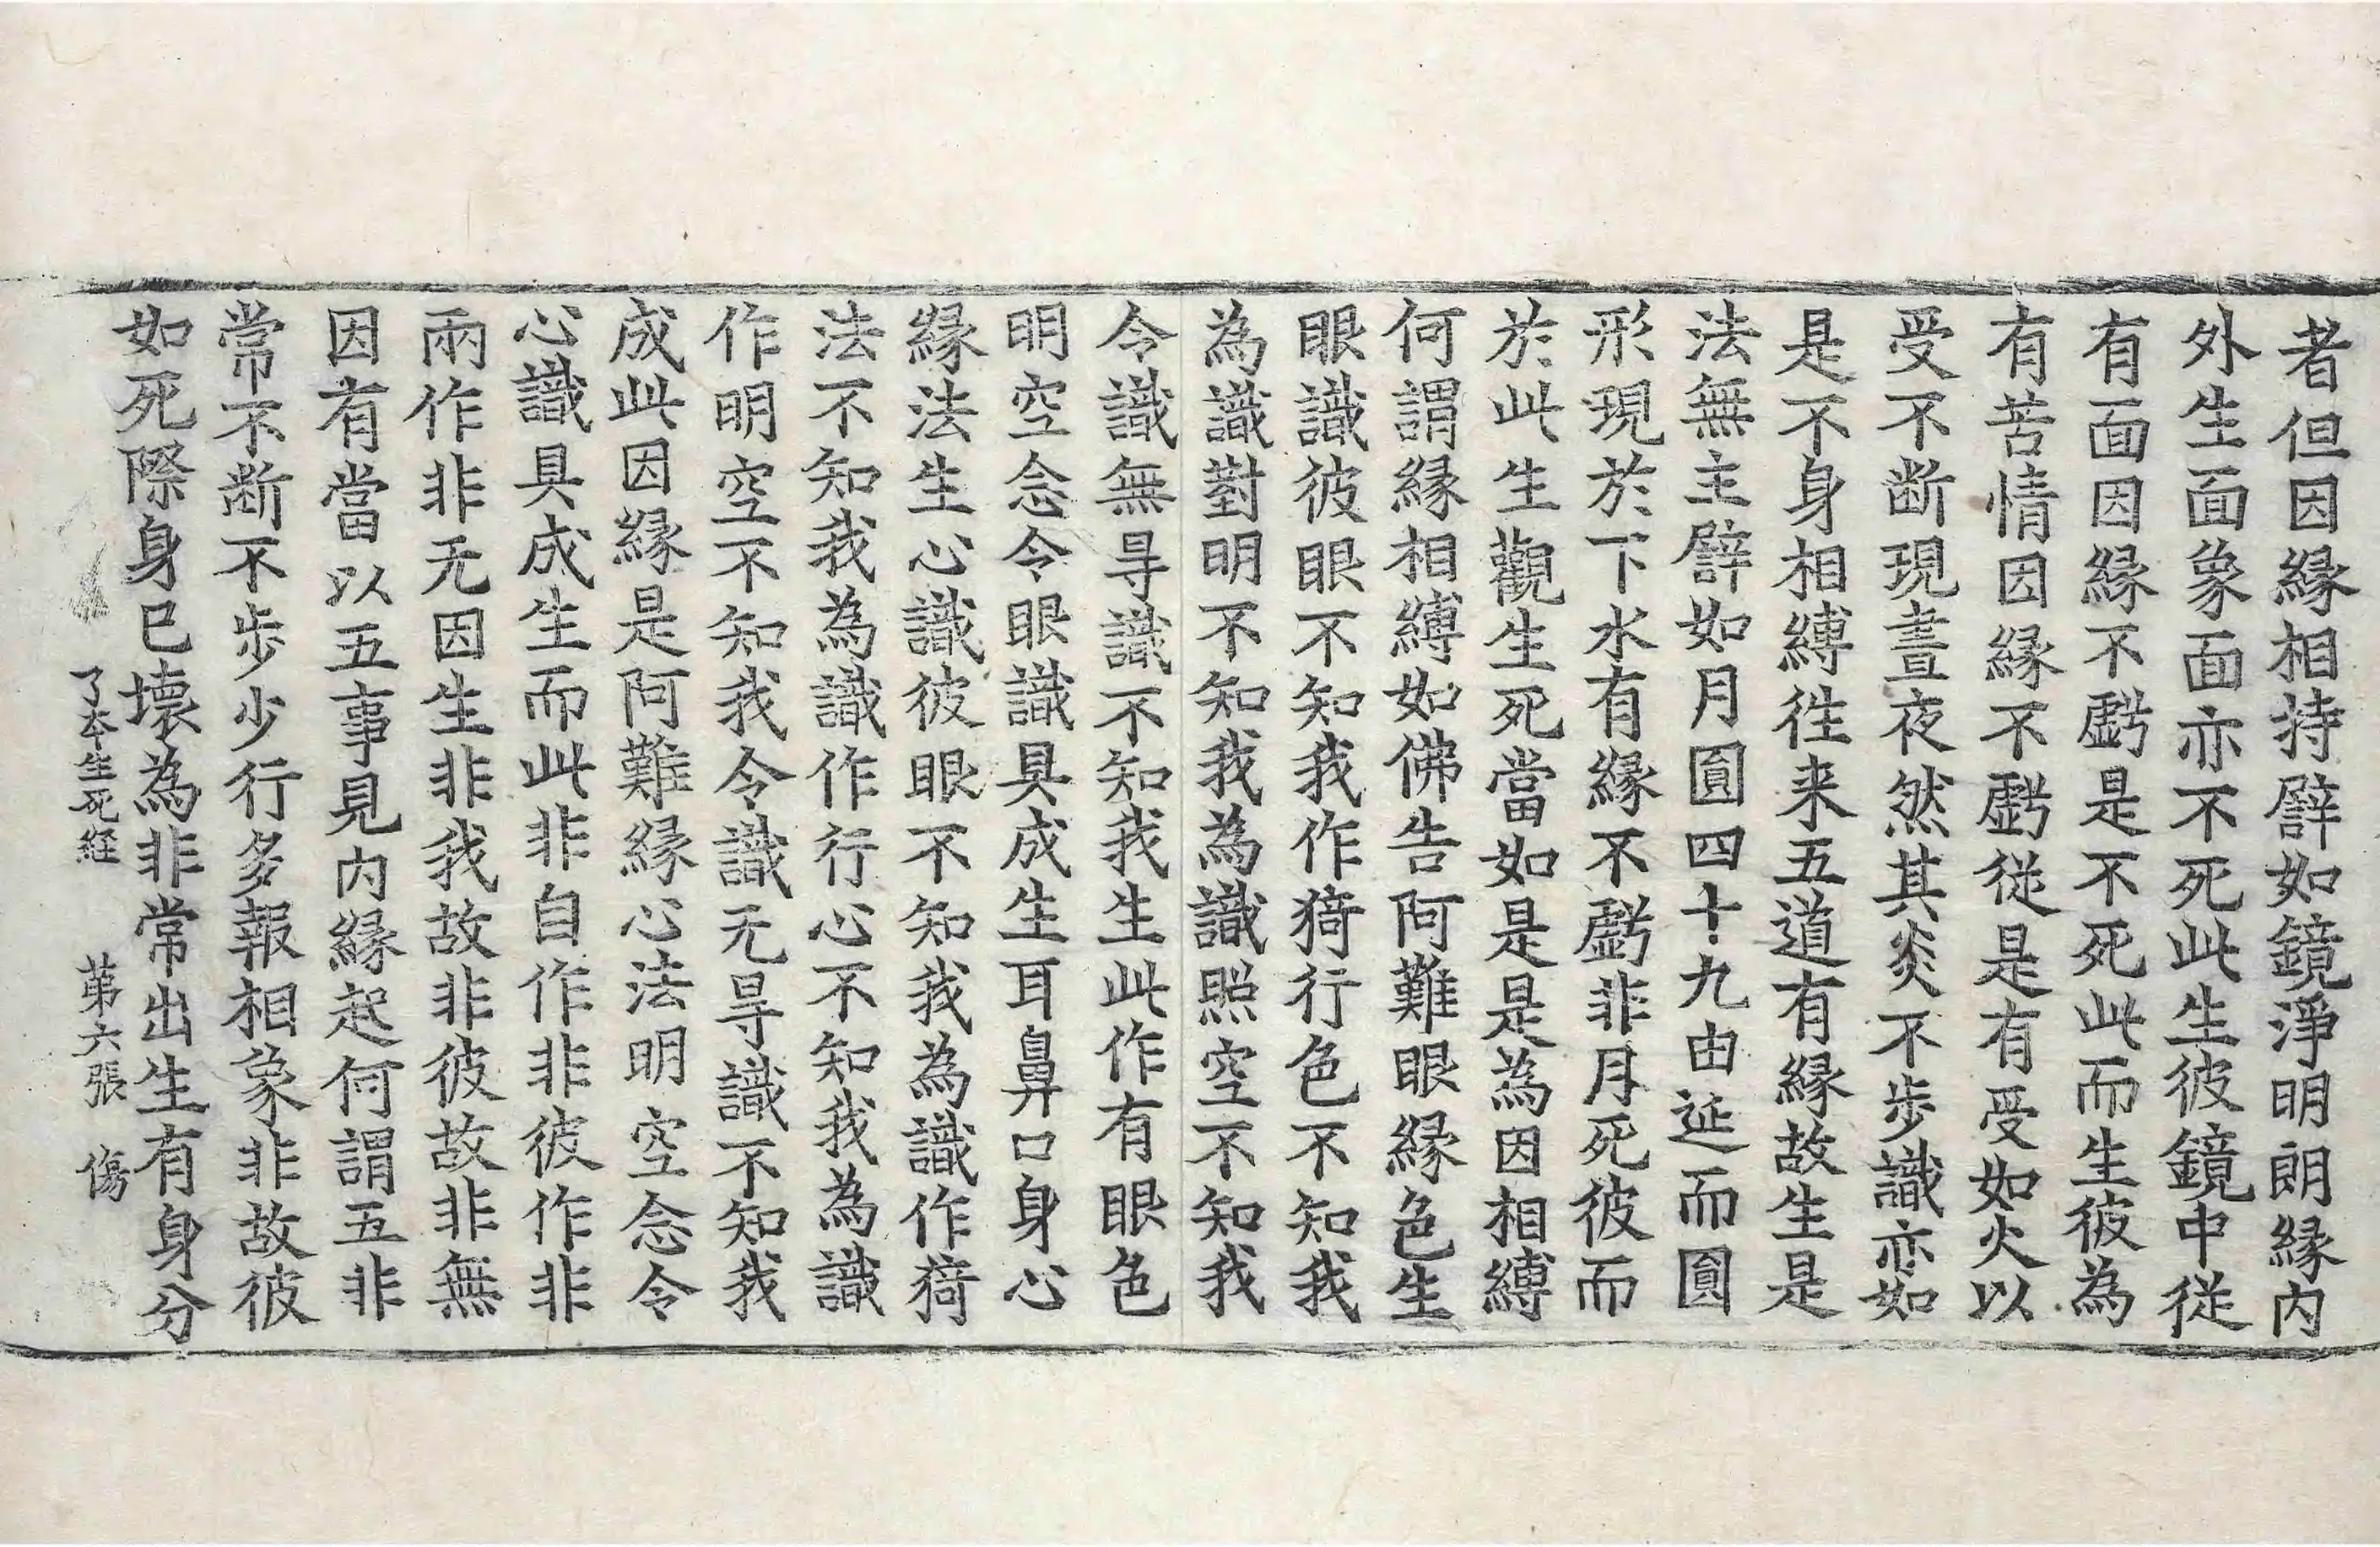 者但因緣相持譬如鏡淨明朗緣内
外生面象面亦不死此生彼鏡中従
有面因緣不虧是不死此而生彼為
有苦情因緣不虧従是有受如火以
受不断現晝夜然其炎不步識亦如
是不身相縛徃来五道有緣故生是
法無主譬如月圓四十九由延而圓
形現於下水有緣不虧非月死彼而
於此生觀生死當如是是為因相縛
何謂緣相縛如佛告阿難眼緣色生
眼識彼眼不知我作猗行色不知我
為識對明不知我為識照空不知我
令識無㝵識不知我生此作有眼色
明空念令眼識具成生耳鼻口身心
緣法生心識彼眼不知我為識作猗
法不知我為識作行心不知我為識
作明空不知我令識无㝵識不知我
成此因緣是阿難緣心法明空念令
心識具成生而此非自作非彼作非
兩作非无因生非我故非彼故非無
因有當以五事見内緣起何謂五非
常不断不步少行多報相象非故彼
如死際身已壞為非常出生有身分
了夲生死経 苐六張 傷